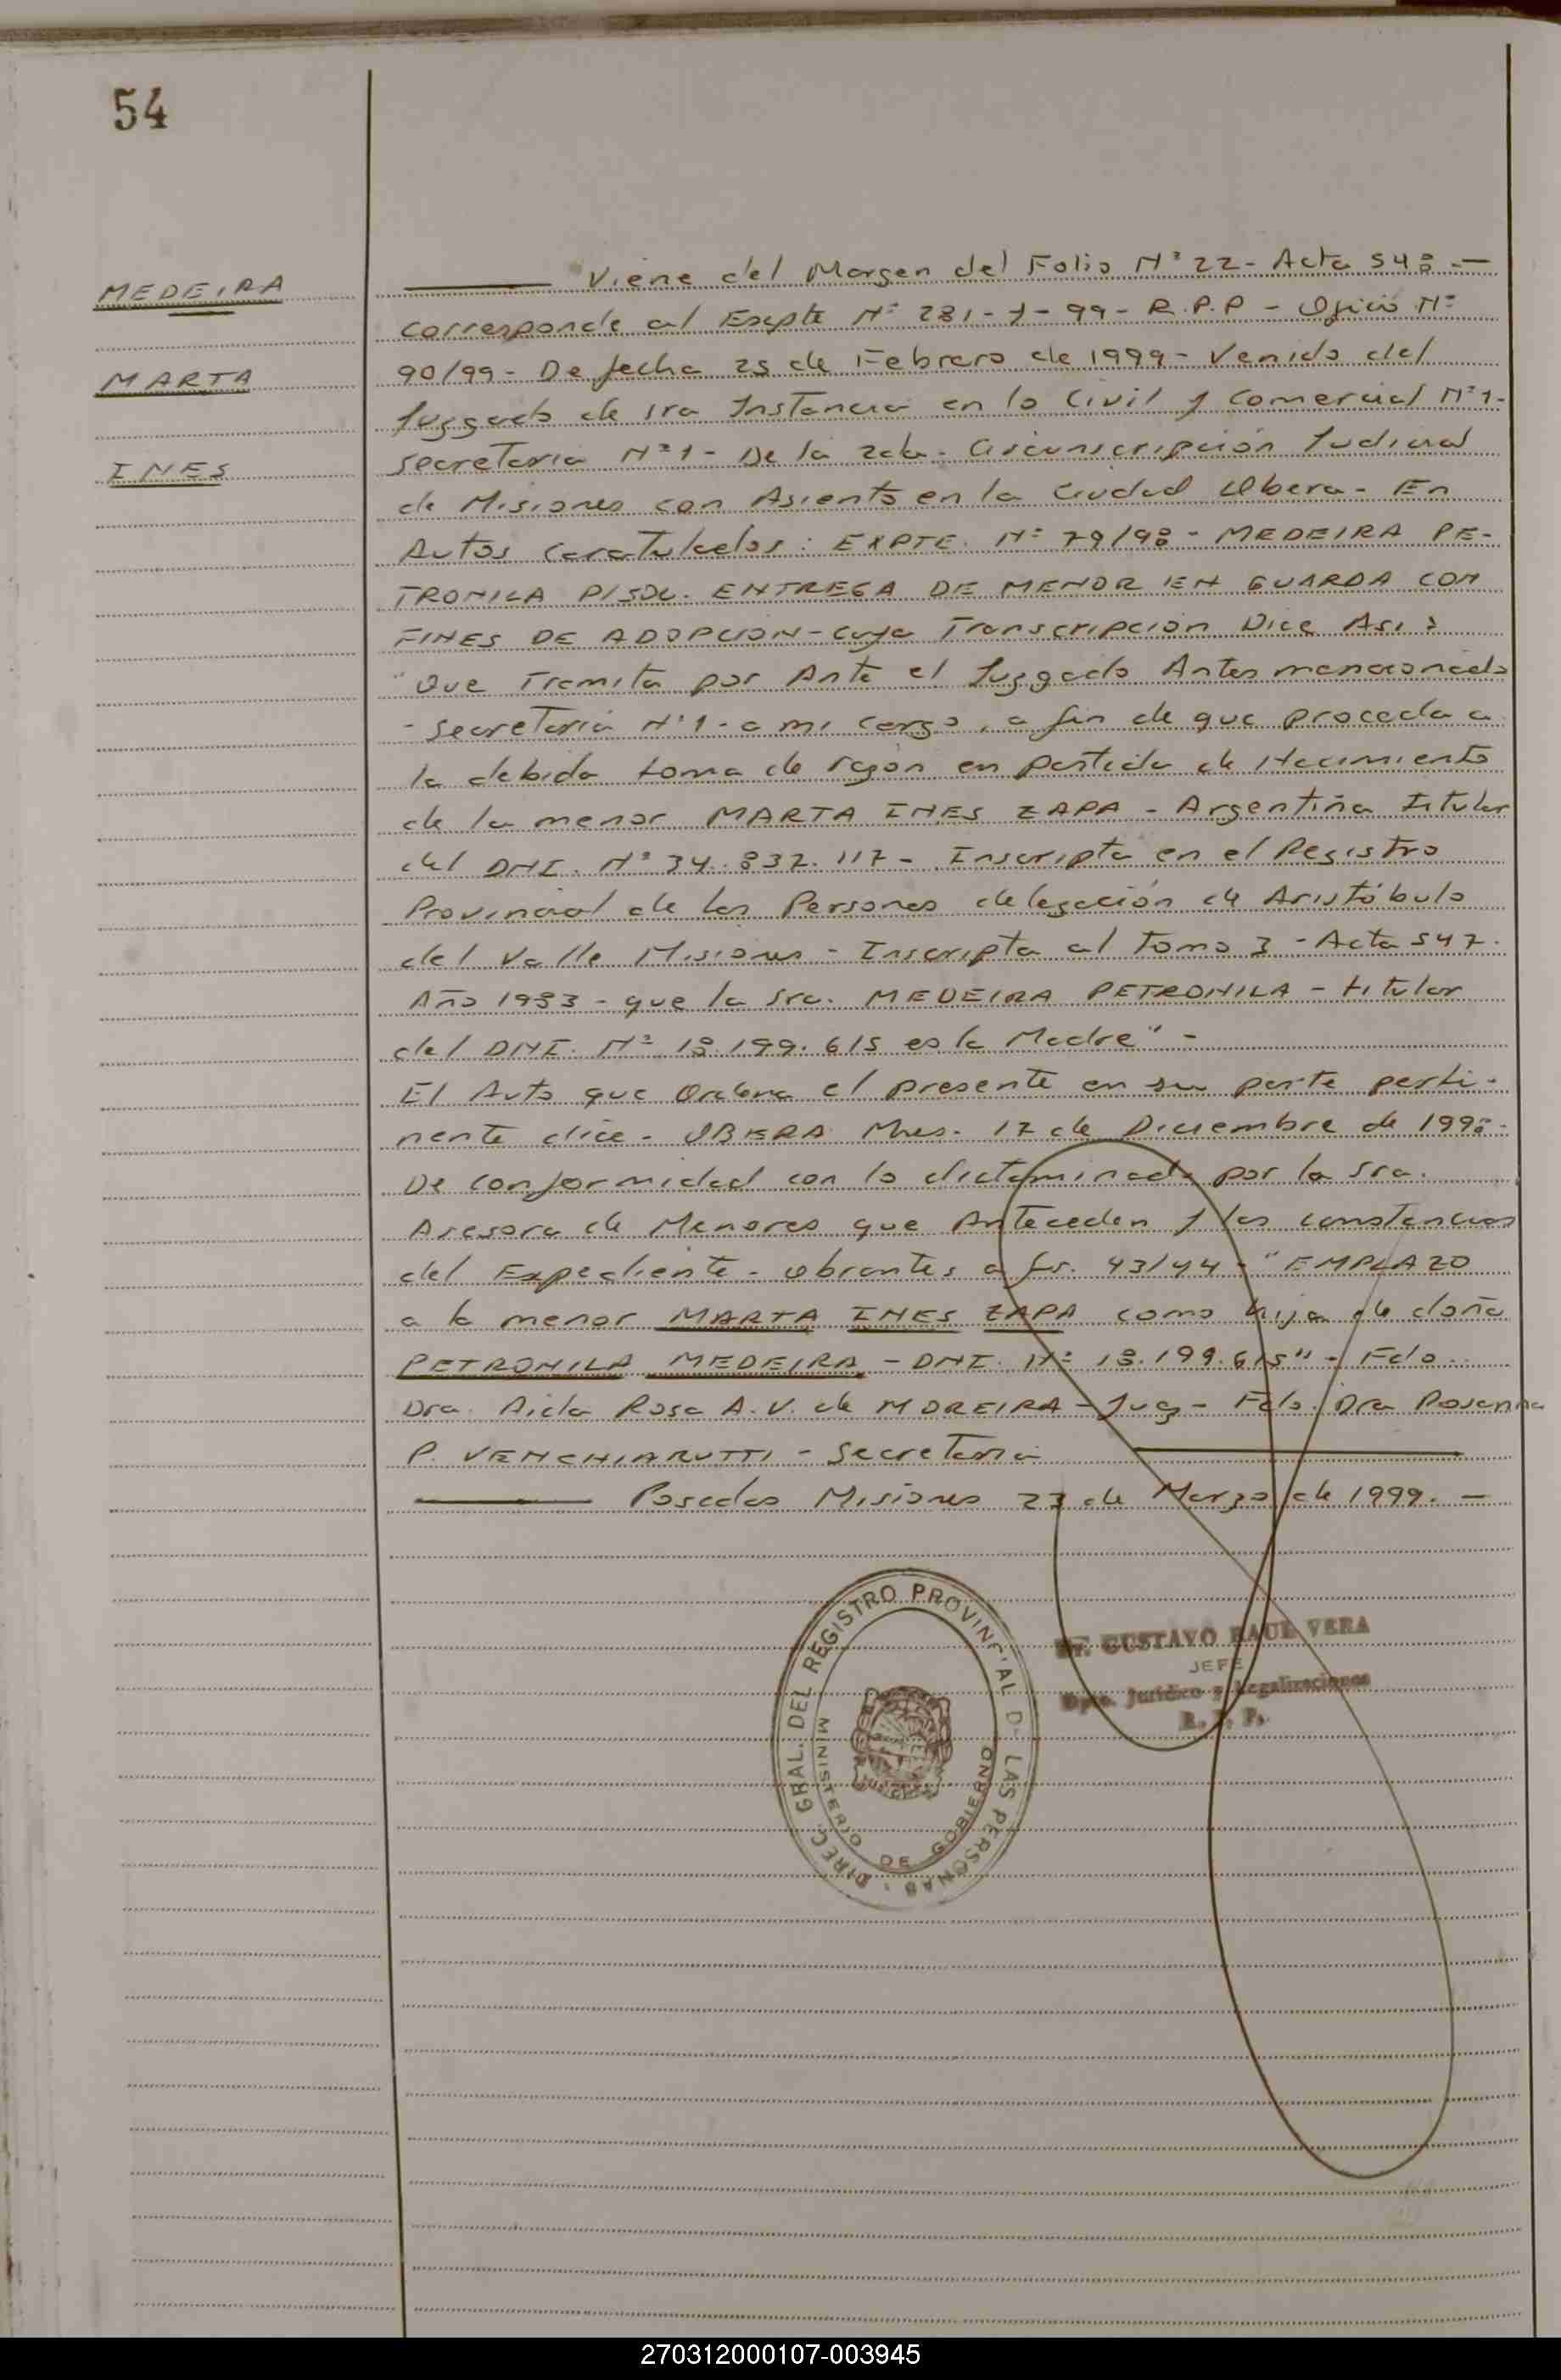 54
MEDEIRA
MARTA
INES
Viene del Margen del Folio Nº 22 - Acta 548 . —
corresponde al Exepte Nº 281 - J - 99 - R.P.P - Oficio Nº
90/99 - De fecha 25 de Febrero de 1999 - Venido del
Juzgado de 1ra Instancia en lo Civil y Comercial Nº 1 -
Secretaria Nº 1 - De la 2da. Circunscripción Judicial
de Misiones con Asiento en la Ciudad Obera - En
Autos Caratulados : EXPTE. Nº 79/98 - MEDEIRA PE-
TRONILA P/SOL. ENTREGA DE MENOR EN GUARDA CON
FINES DE ADOPCION - cuya Transcripción Dice Asi :
"Que Tramita por Ante el Juzgado Antes mencionado
- Secretaria Nº 1 - a mi cargo, a fin de que proceda a
la debida toma de razón en partida de Nacimiento
de la menor MARTA INES ZAPA - Argentina Titular
del DNI. Nº 34.832.117 - Inscripta en el Registro
Provincial de las Personas delegación de Aristóbulo
del Valle Misiones - Inscripta al Tomo 3 - Acta 547 -
Año 1983 - que la Sra. MEDEIRA PETRONILA - titular
del DNI. Nº 18.199.615 es la Madre" -
El Auto que Ordena el presente en su parte perti-
nente dice - OBERA Mnes. 17 de Diciembre de 1998 -
De conformidad con lo dictaminado por la Sra.
Asesora de Menores que Anteceden y las constancias
del Expediente - obrantes a fs. 43/44 - "EMPLAZO
a la menor MARTA INES ZAPA como hija de doña
PETRONILA MEDEIRA - DNI. Nº 18.199.615" - Fdo.
Dra. Aida Rosa A.V. de MOREIRA - Juez - Fdo. Dra Rosanna
P. VENCHIARUTTI - Secretaria
Posadas Misiones 23 de Marzo de 1999. —
DIREC. GRAL. DEL REGISTRO PROVINCIAL DE LAS PERSONAS
MINISTERIO DE GOBIERNO
Dr. GUSTAVO RAUL VERA
JEFE
Dpto. Jurídico y Legalizaciones
R. P. P.
270312000107-003945